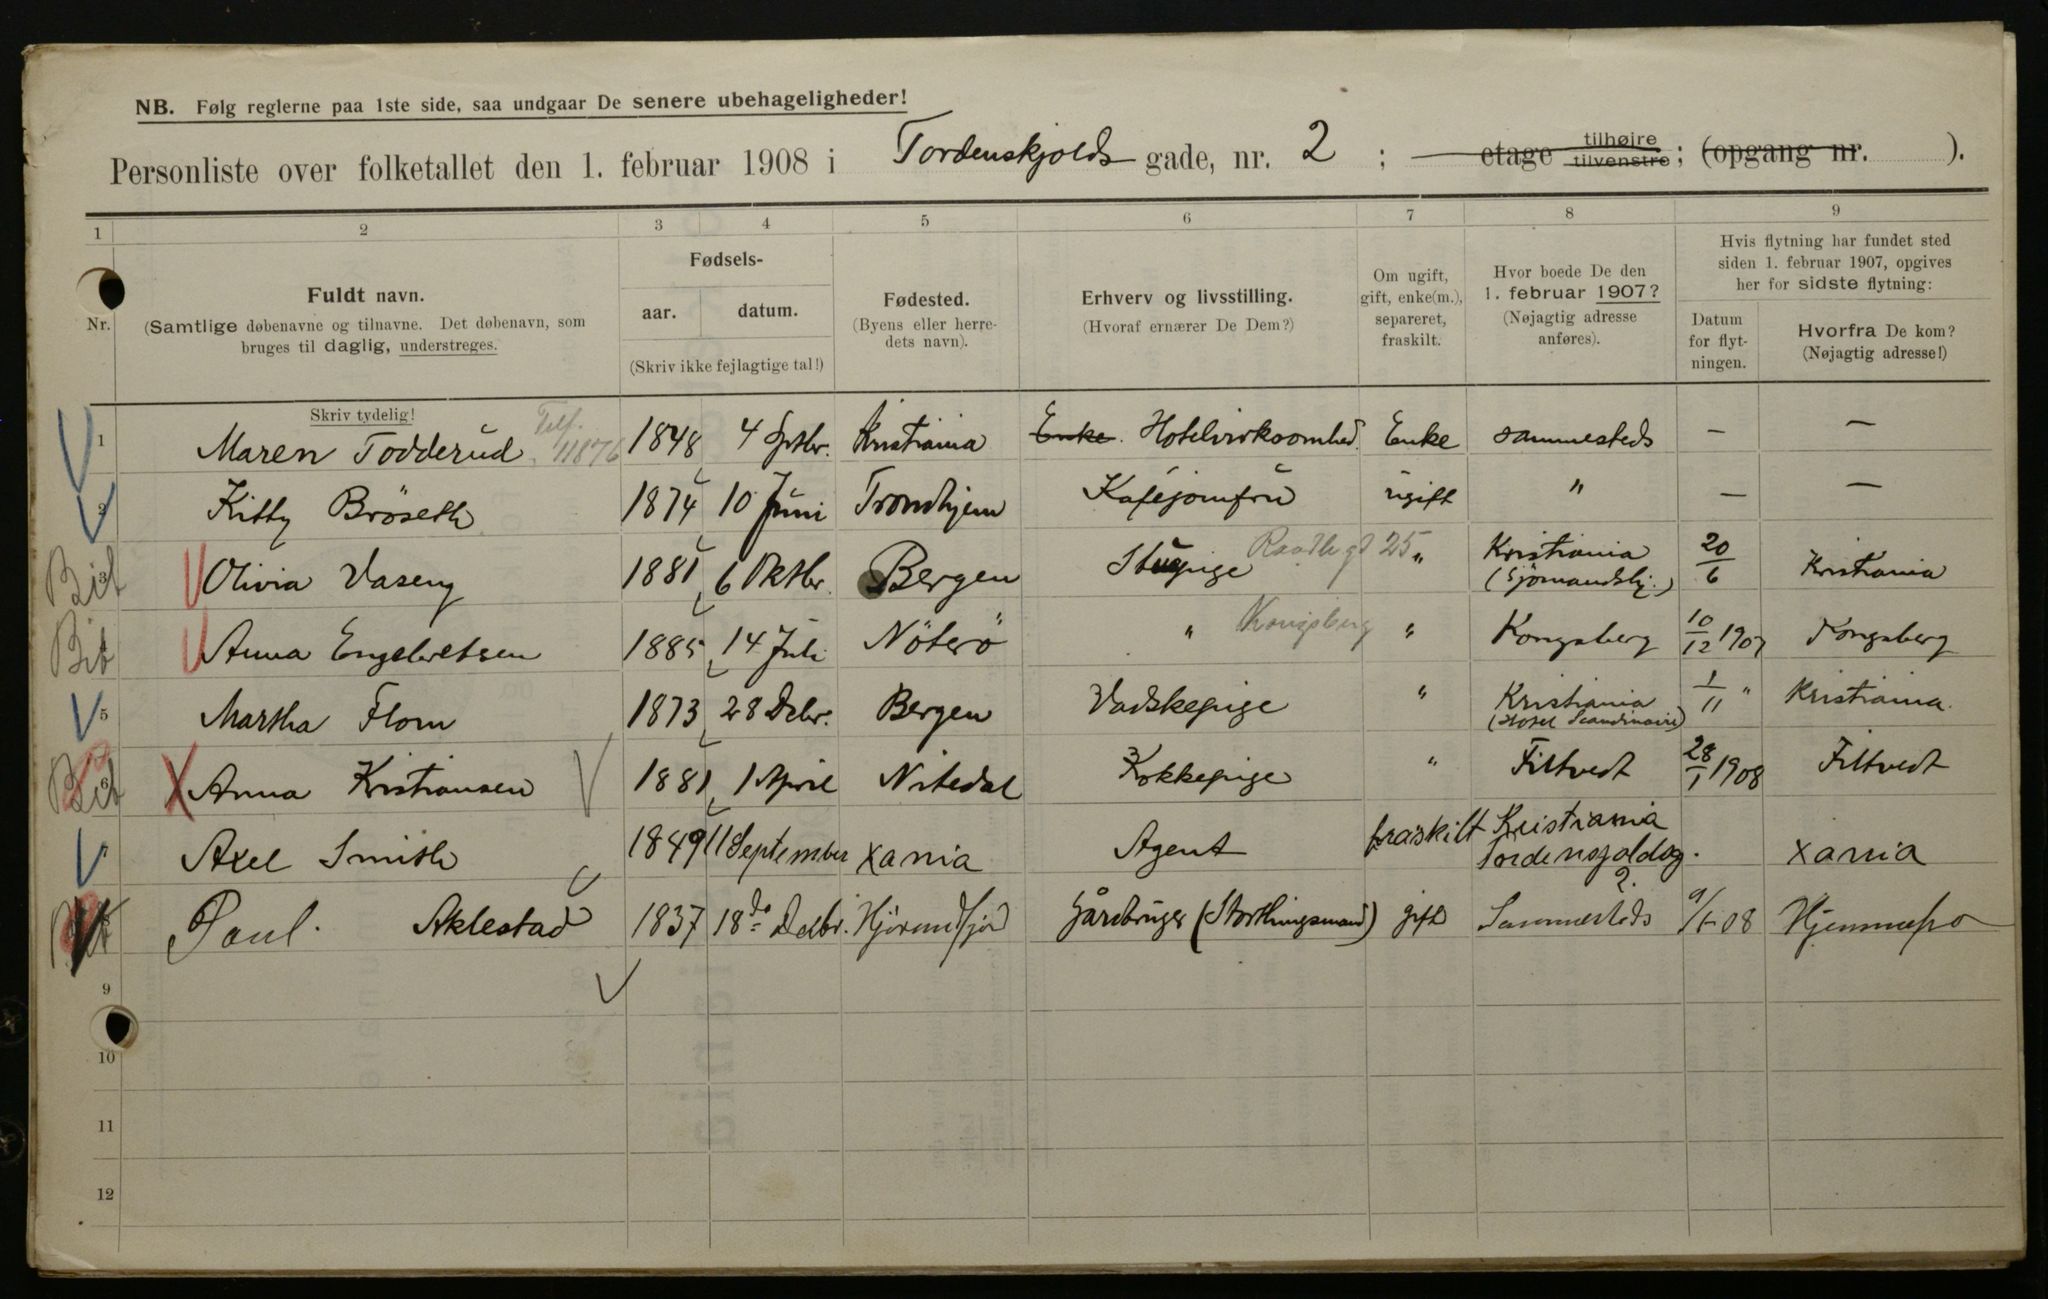 NB. Følg reglerne paa 1ste side, saa undgaar De senere ubehageligheder!
Personliste over folketallet den 1. februar 1908 i Tordenskjolds gade, nr. 2 ; etage tilhøjre tilvenstre; (opgang nr. ).
1 2 3 4 5 6 7 8 9
Nr.
Fuldt navn.
(Samtlige døbenavne og tilnavne. Det døbenavn, som
bruges til daglig, understreges.
Skriv tydelig!
Fødsels-
aar. datum.
(Skriv ikke fejlagtige tal!)
Fødested.
(Byens eller herre-
dets navn).
Erhverv og livsstilling.
(Hvoraf ernærer De Dem?)
Om ugift,
gift, enke(m.),
separeret,
fraskilt.
Hvor boede De den
1. februar 1907?
(Nøjagtig adresse
anføres).
Hvis flytning har fundet sted
siden 1. februar 1907, opgives
her for sidste flytning:
Datum
for flyt-
ningen.
Hvorfra De kom?
(Nøjagtig adresse!)
1 Maren Todderud Telf. 11876 1848 4 Sptbr. Kristiania Enke. Hotelvirksomhed. Enke sammesteds — —
2 Kitty Bröseth 1874 10 Juni Trondhjem Kaféjomfru ugift " — —
Bit 3 Olivia Vaseng 1881 6 Oktbr. Bergen Stuepige Raadh.gt 25 " Kristiania (Sjömandshj.) 20/6 Kristiania
Bit Anna Engebretsen 1885 14 Juli Nöterö " Kongsberg " Kongsberg 10/12 1907 Kongsberg
5 Martha Flom 1873 28 Debr. Bergen Vadskepige " Kristiania (Hotel Scandinavie) 1/11 " Kristiania.
Bit 6 Anna Kristiansen 1881 1 April Nitedal Kokkepige " Filtvedt 28/1 1908 Filtvedt
Axel Smith 1849 11 September Xania Agent fraskilt Kristiania Tordenskjoldsg. 2. Xania
Bit 8 Paul. Aklestad 1837 18de Decbr. Hjörundfjord Gårdbruger (Storthingsmand) gift Sammesteds 9/1-08 Hjemmefra
9
10
11
12